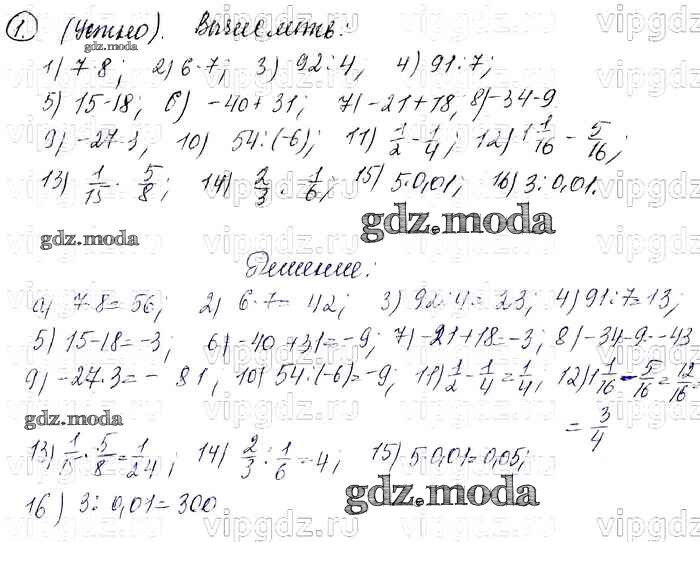 1. (Устно). Вычислить:
1) 7·8; 2) 6·7; 3) 92:4, 4) 91:7;
5) 15-18; 6) -40+31; 7) -21+18, 8) -34-9
9) -27·3; 10) 54:(-6); 11) 1/2 - 1/4; 12) 1 1/16 - 5/16;
13) 1/15 · 5/8; 14) 2/3 : 1/6; 15) 5·0,01; 16) 3:0,01.
gdz.moda
Решение:
1) 7·8=56; 2) 6·7=42; 3) 92:4=23; 4) 91:7=13;
5) 15-18=-3; 6) -40+31=-9; 7) -21+18=-3; 8) -34-9=-43
9) -27·3=-81, 10) 54:(-6)=-9, 11) 1/2 - 1/4 = 1/4, 12) 1 1/16 - 5/16 = 12/16 =
= 3/4
13) 1/15 · 5/8 = 1/24; 14) 2/3 : 1/6 = 4; 15) 5·0,01=0,05;
16) 3:0,01=300
gdz.moda
vipgdz.ru